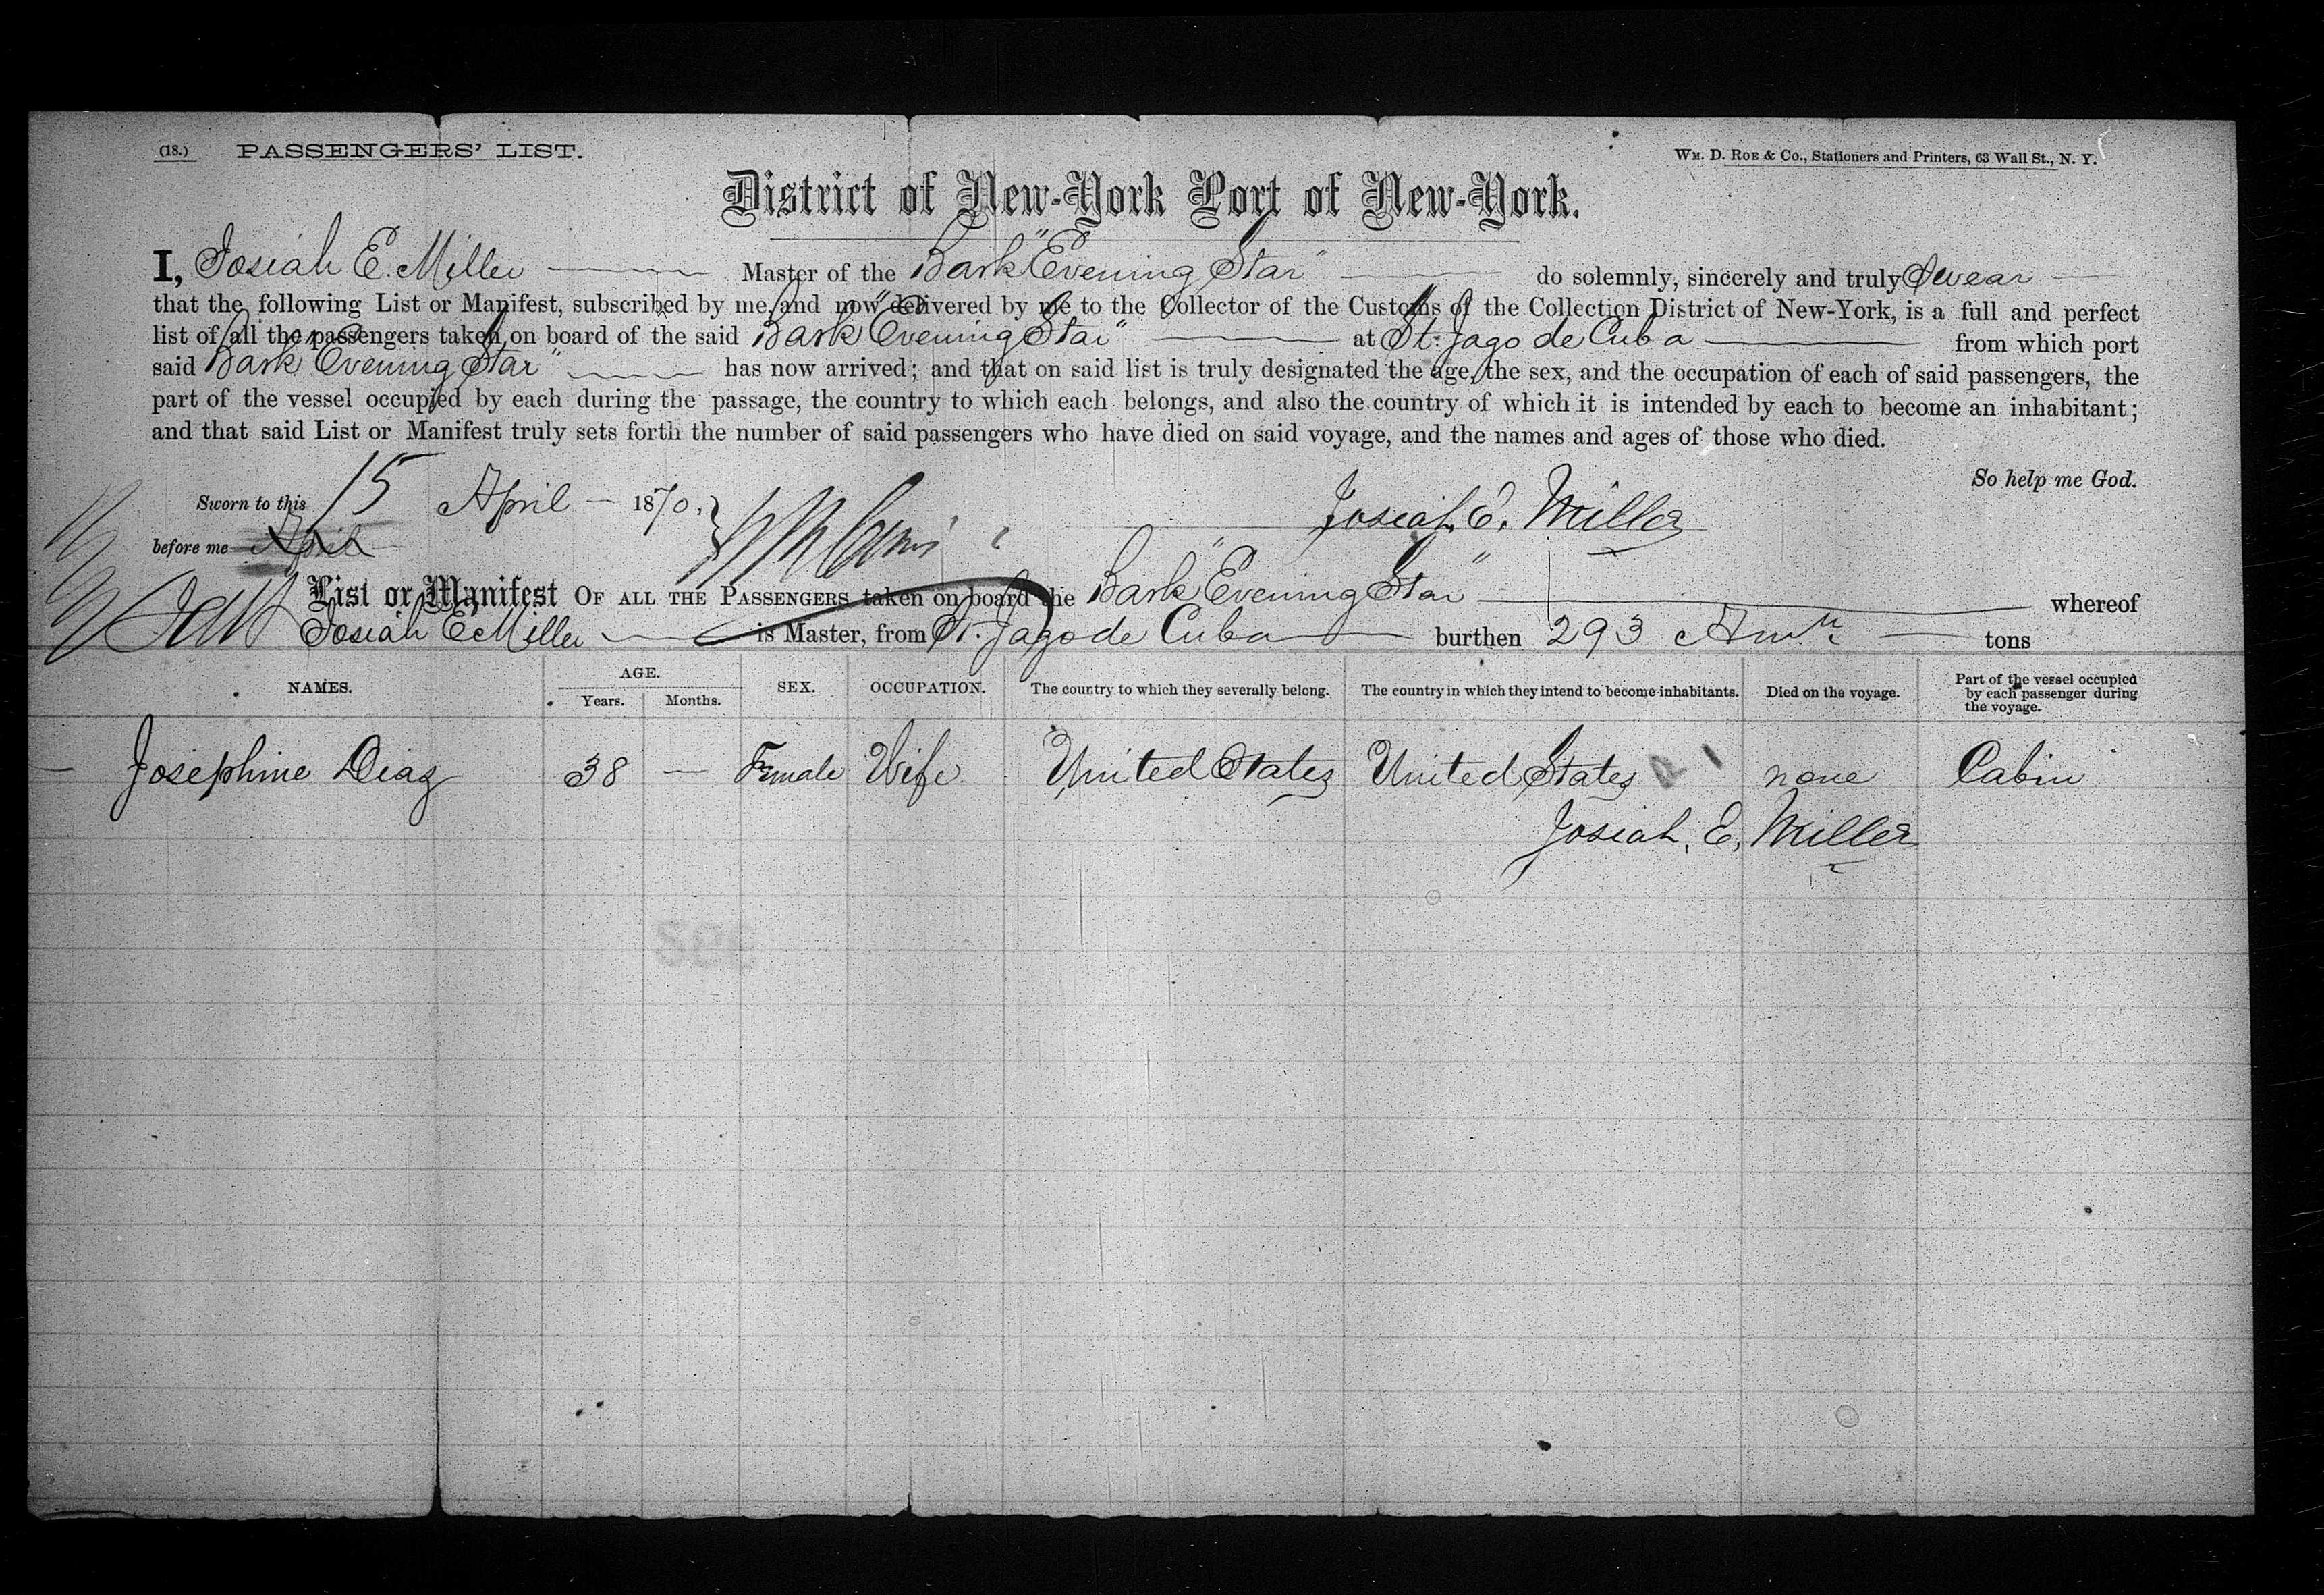 (18.) PASSENGERS' LIST. WM. D. ROE & CO., Stationers and Printers, 63 Wall St., N. Y.
District of New-York Port of New-York.
I, Josiah E. Miller Master of the Bark "Evening Star" do solemnly, sincerely and truly Swear
that the following List or Manifest, subscribed by me and now delivered by me to the Collector of the Customs of the Collection District of New-York, is a full and perfect
list of all the passengers taken on board of the said Bark "Evening Star" at St. Jago de Cuba from which port
said Bark "Evening Star" has now arrived; and that on said list is truly designated the age, the sex, and the occupation of each of said passengers, the
part of the vessel occupied by each during the passage, the country to which each belongs, and also the country of which it is intended by each to become an inhabitant;
and that said List or Manifest truly sets forth the number of said passengers who have died on said voyage, and the names and ages of those who died.
So help me God.
Sworn to this 15 April 1870, Josiah, E, Miller
before me April
List or Manifest OF ALL THE PASSENGERS taken on board the Bark "Evening Star" whereof
Josiah E Miller is Master, from St. Jago de Cuba burthen 293 tons
NAMES. AGE. Years. Months. SEX. OCCUPATION. The country to which they severally belong. The country in which they intend to become inhabitants. Died on the voyage. Part of the vessel occupied by each passenger during the voyage.
Josephine Diaz 38 — Female Wife United States United States none Cabin
Josiah, E, Miller